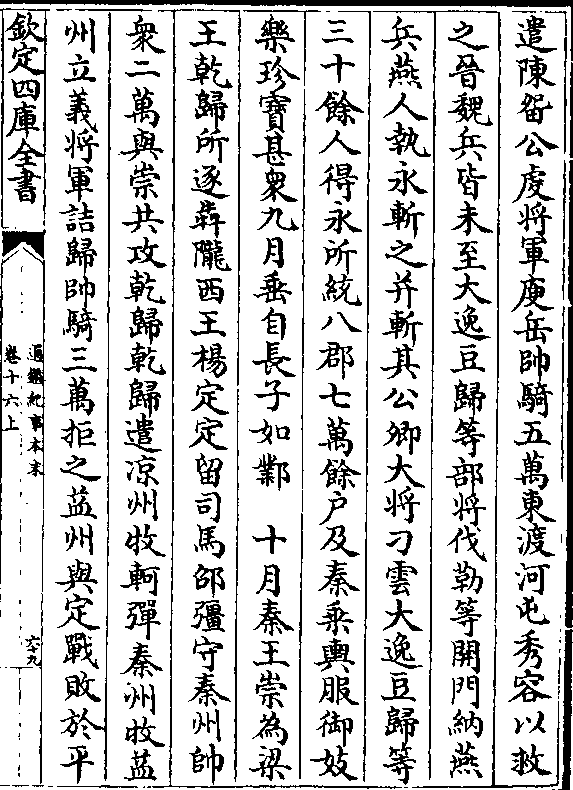 遣陳留公虔将軍庾岳帥騎五萬東渡河屯秀容以救
之晉魏兵皆未至大逸豆歸等部将伐勒等開門納燕
兵燕人執永斬之并斬其公卿大将刁雲大逸豆歸等
三十餘人得永所統八郡七萬餘户及秦乘輿服御妓
樂珍寶甚衆九月垂自長子如鄴　十月秦王崇為梁
王乾歸所逐犇隴西王楊定定留司馬邵彊守秦州帥
衆二萬與崇共攻乾歸乾歸遣凉州牧軻彈秦州牧益
州立義将軍詰歸帥騎三萬拒之益州與定戰敗於平
欽定四庫全書
通鑑紀事本末
卷十六上
六十九